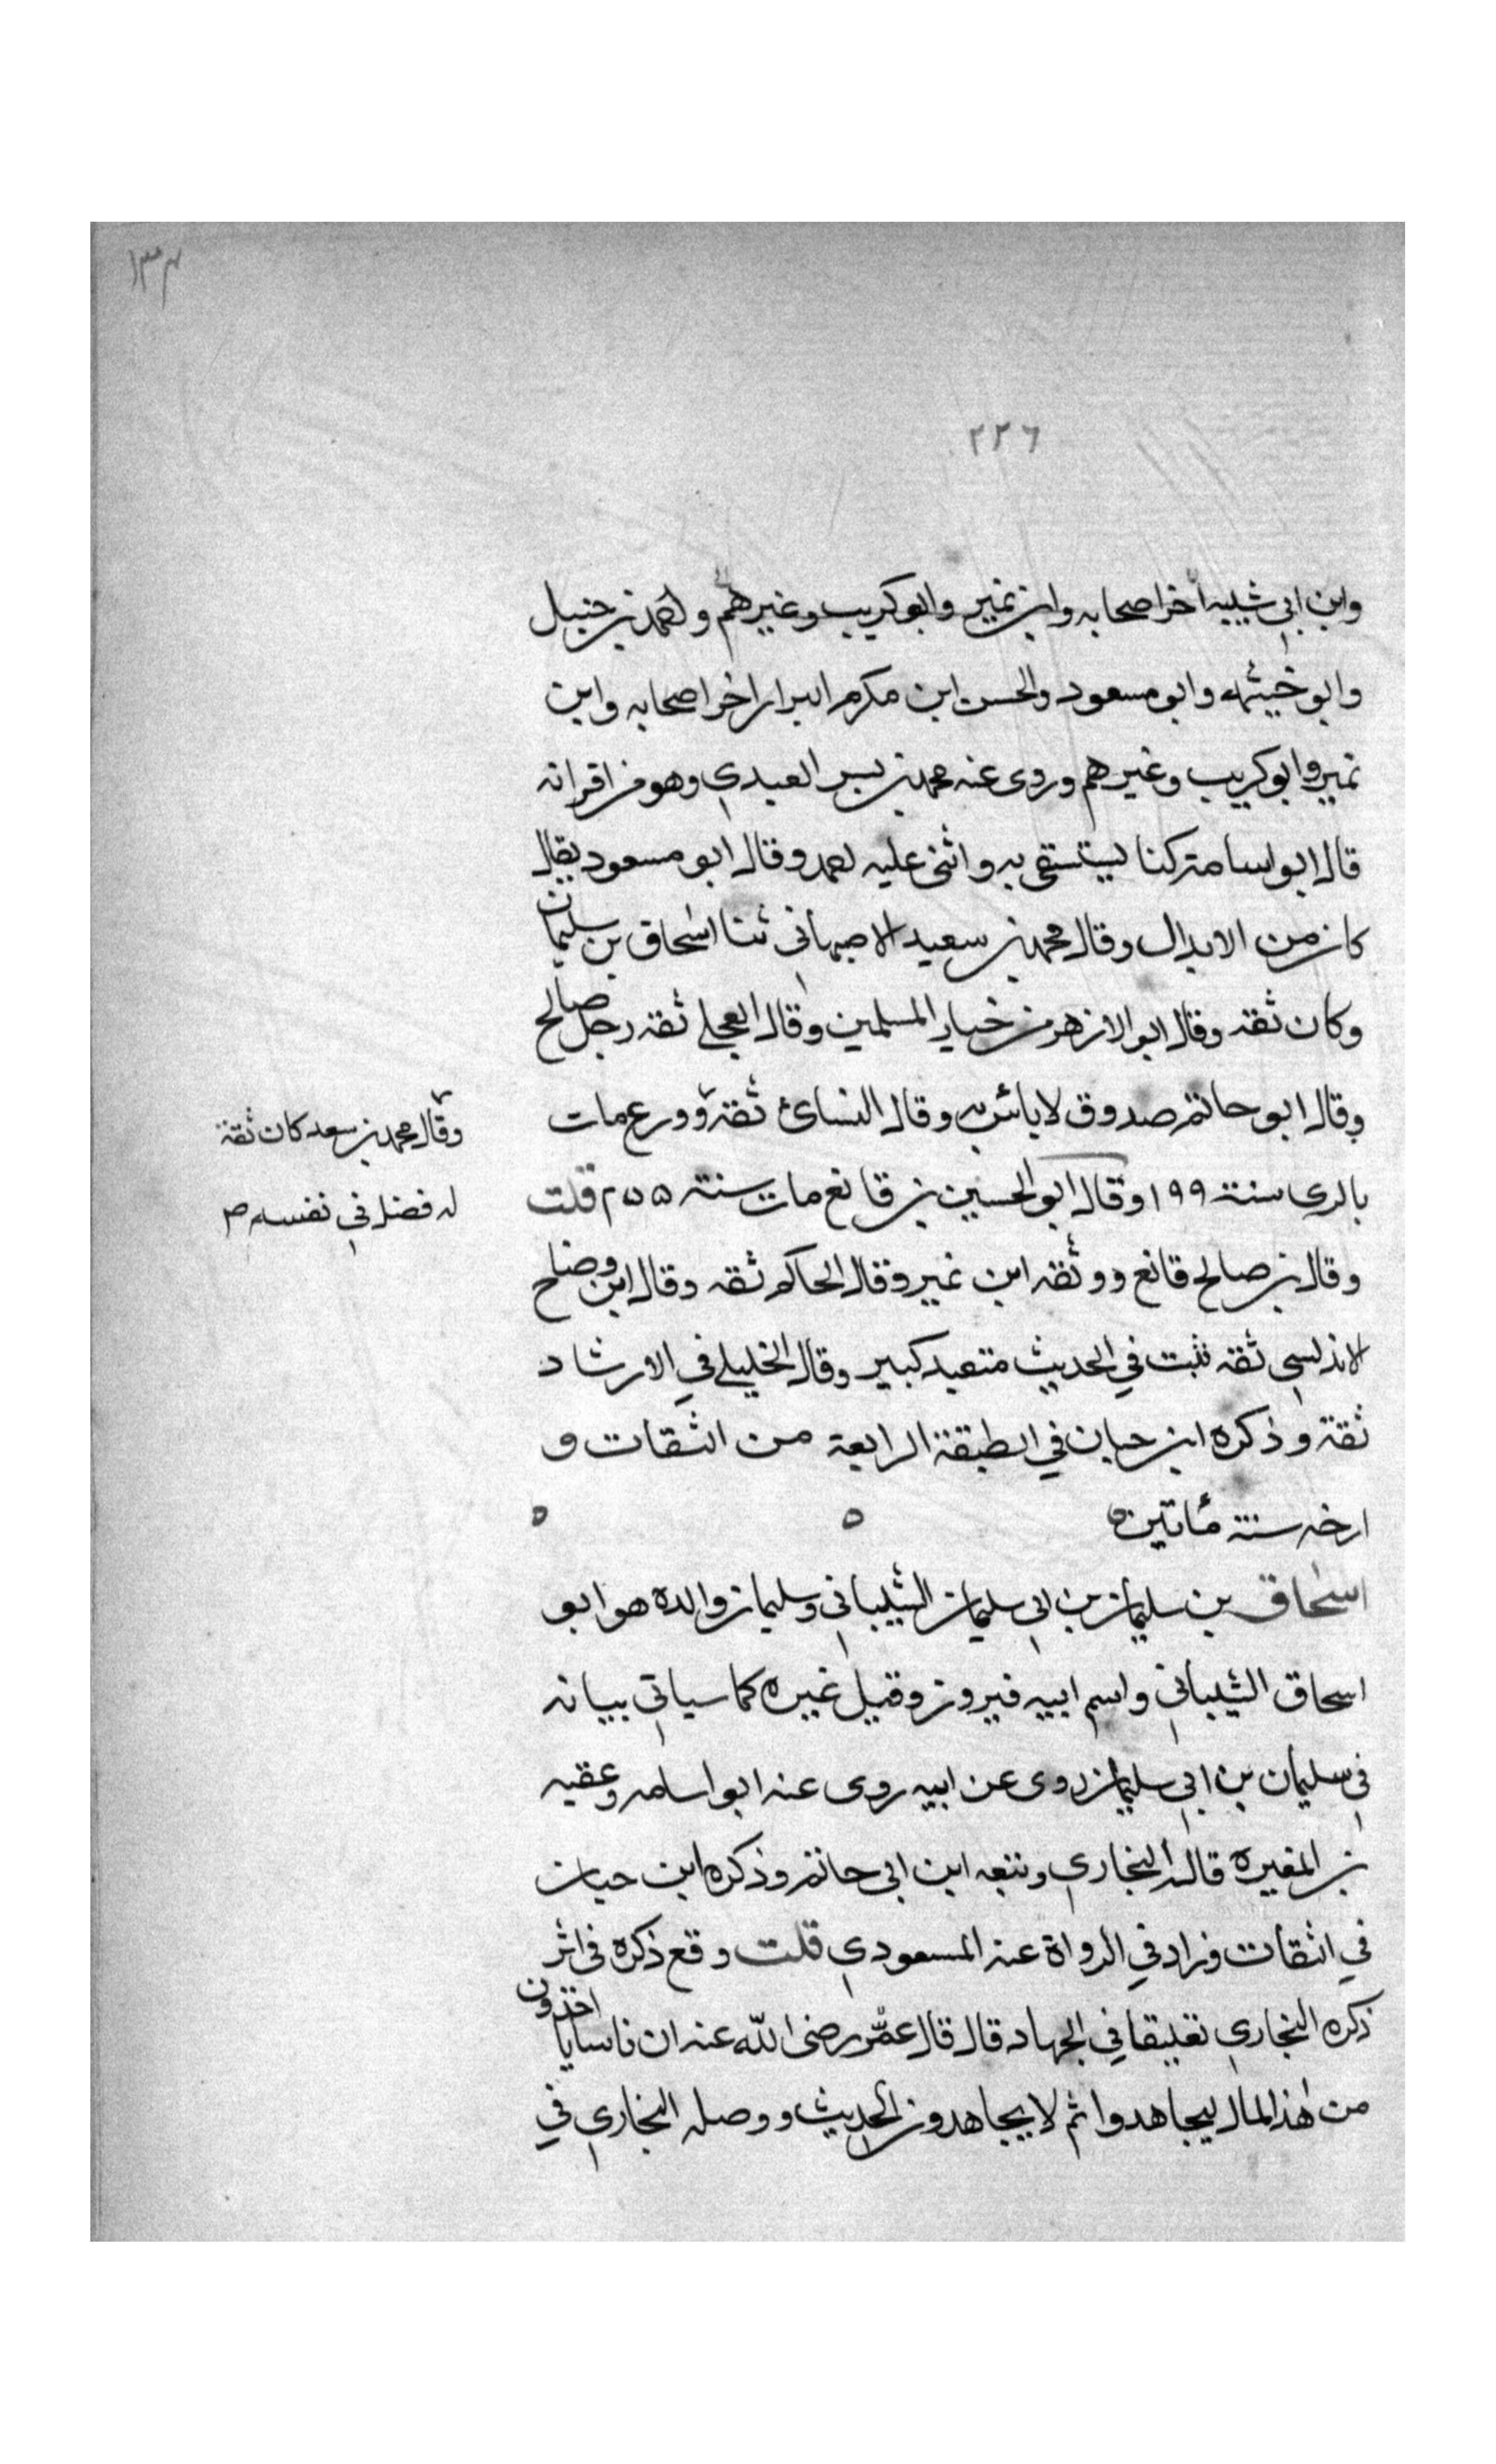 ١٣٣
٢٢٦
وابن ابي شيبه اخر اصحابه وابن نمير وابو كريب وغيرهم واحمد بن حنبل
وابو خيثمه وابو مسعود والحسن ابن مكرم البزار اخر اصحابه وابن
نمير وابو كريب وغيرهم وروى عنه محمد بن بسر العبدي وهو من اقرانه
قال ابو اسامة كنا يستسقى به واثنى عليه احمد وقال ابو مسعود يقال
كان من الابدال وقال محمد بن سعيد الاصبهاني ثنا اسحاق بن سليمان
وكان ثقه وقال ابو الازهر من خيار المسلمين وقال العجلي ثقه رجل صالح
وقال ابو حاتم صدوق لا باس به وقال النسائ ثقة وورع مات
وقال محمد بن سعد كان ثقة
له فضل في نفسه
بالرى سنة ١٩٩ وقال ابو الحسين بن قانع مات سنة قلت
وقال بن صالح قانع ووثقه ابن نمير وقال الحاكم ثقه وقال ابن وضاح
الاندلسي ثقه ثبت في الحديث متعبد كبير وقال الخليلي في الارشاد
ثقة وذكره ابن حبان في الطبقة الرابعة من الثقات و
ارخه سنة مأتين ه ه ه
اسحاق بن سليمان بن ابي سليمان الشيباني وسليمان والده هو ابو
اسحاق الشيباني واسم ابيه فيروز وقيل غيره كما سياتي بيانه
في سليمان بن ابي سليمان روى عن ابيه روى عنه ابو اسامه وعقبه
بن المغيرة قاله البخاري وتبعه ابن ابي حاتم وذكره ابن حبان
في الثقات وزاد في الرواة عنه المسعودي قلت وقع ذكره في اثر
ذكره البخاري تعليقا في الجهاد قال قال عمر رضى الله عنه ان ناسا ياخذون
من هذا المال ليجاهدوا ثم لا يجاهدون الحديث ووصله البخاري في